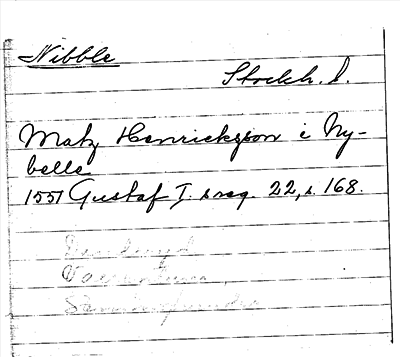 Nibble
Stockh. l.
Matz Henricksson i Ny-
belle
1551 Gustaf I:s reg. 22, s. 168.